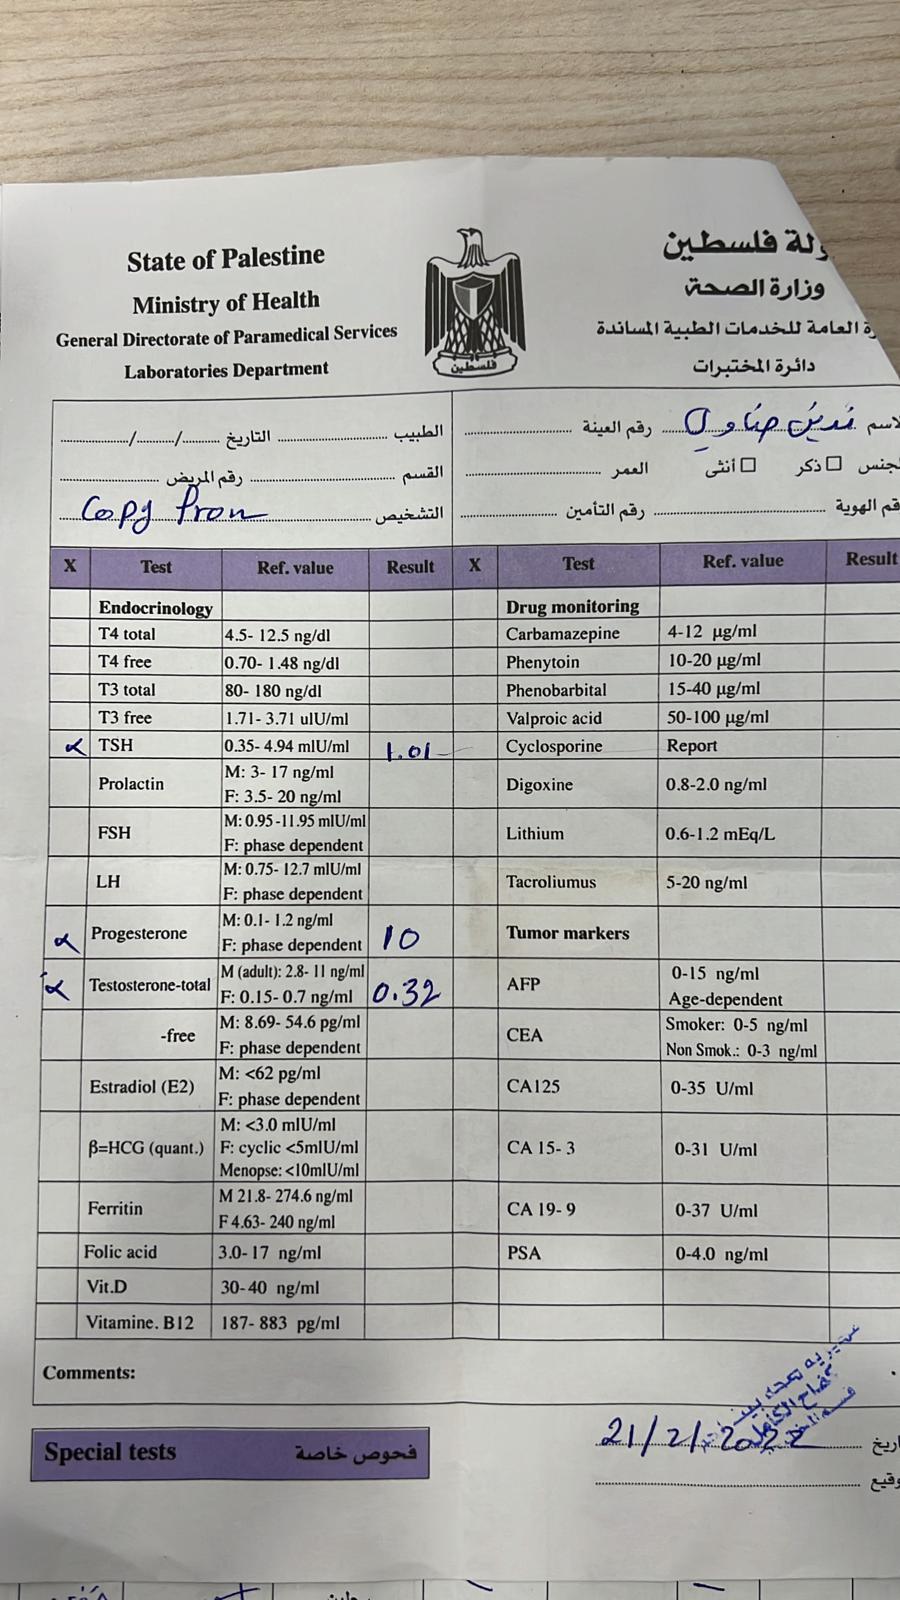 State of Palestine
Ministry of Health
General Directorate of Paramedical Services
Laboratories Department
ولة فلسطين
وزارة الصحة
ة العامة للخدمات الطبية المساندة
دائرة المختبرات
فلسطين
لاسم نديـن رقم العينة
لجنس ذكر أنثى العمر
قم الهوية رقم التأمين
الطبيب التاريخ / /
القسم رقم المريض
التشخيص Copy From
X Test Ref. value Result X Test Ref. value Result
Endocrinology Drug monitoring
T4 total 4.5- 12.5 ng/dl Carbamazepine 4-12 µg/ml
T4 free 0.70- 1.48 ng/dl Phenytoin 10-20 µg/ml
T3 total 80- 180 ng/dl Phenobarbital 15-40 µg/ml
T3 free 1.71- 3.71 uIU/ml Valproic acid 50-100 µg/ml
TSH 0.35- 4.94 mIU/ml 1.01 Cyclosporine Report
Prolactin M: 3- 17 ng/ml
F: 3.5- 20 ng/ml Digoxine 0.8-2.0 ng/ml
FSH M: 0.95 -11.95 mIU/ml
F: phase dependent Lithium 0.6-1.2 mEq/L
LH M: 0.75- 12.7 mIU/ml
F: phase dependent Tacroliumus 5-20 ng/ml
Progesterone M: 0.1- 1.2 ng/ml
F: phase dependent 10 Tumor markers
Testosterone-total M (adult): 2.8- 11 ng/ml
F: 0.15- 0.7 ng/ml 0.32 AFP 0-15 ng/ml
Age-dependent
-free M: 8.69- 54.6 pg/ml
F: phase dependent CEA Smoker: 0-5 ng/ml
Non Smok.: 0-3 ng/ml
Estradiol (E2) M: <62 pg/ml
F: phase dependent CA125 0-35 U/ml
β=HCG (quant.) M: <3.0 mIU/ml
F: cyclic <5mIU/ml
Menopse: <10mIU/ml CA 15- 3 0-31 U/ml
Ferritin M 21.8- 274.6 ng/ml
F 4.63- 240 ng/ml CA 19- 9 0-37 U/ml
Folic acid 3.0- 17 ng/ml PSA 0-4.0 ng/ml
Vit.D 30- 40 ng/ml
Vitamine. B12 187- 883 pg/ml
Comments:
Special tests فحوص خاصة
اريخ 21/2/
وقيع